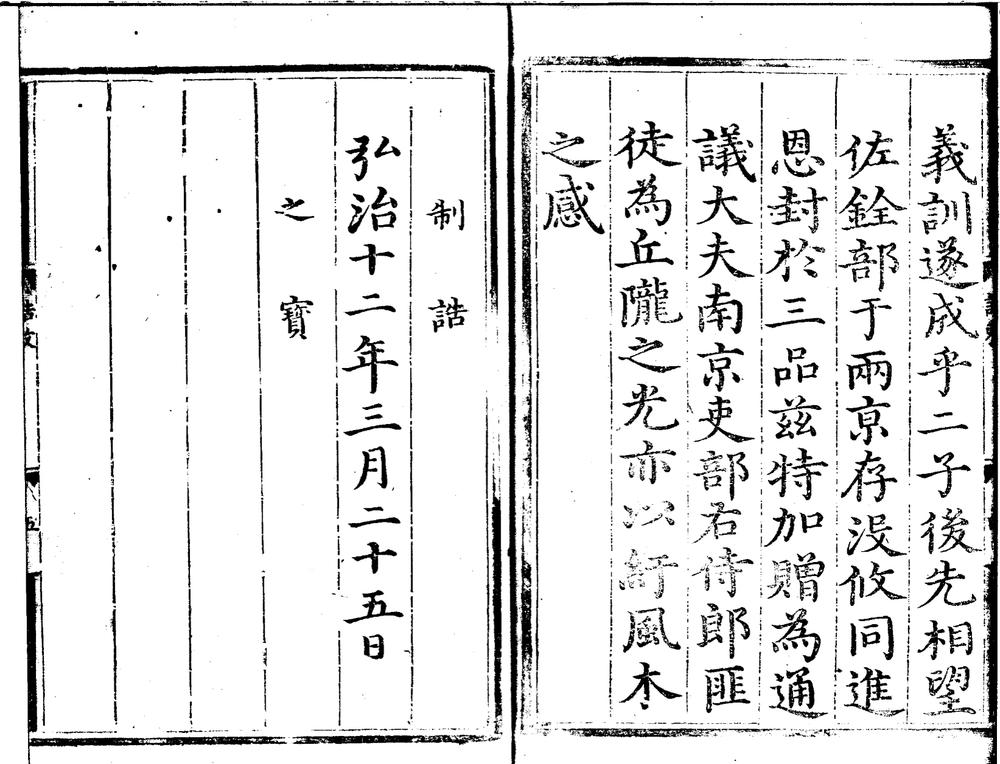 義訓遂成乎二子後先相望
佐銓部于兩京存沒攸同進
恩封於三品茲特加贈為通
議大夫南京吏部右侍郎匪
徒為丘隴之光亦以紓風木
之感
制誥
弘治十二年三月二十五日
之寶
誥文
五